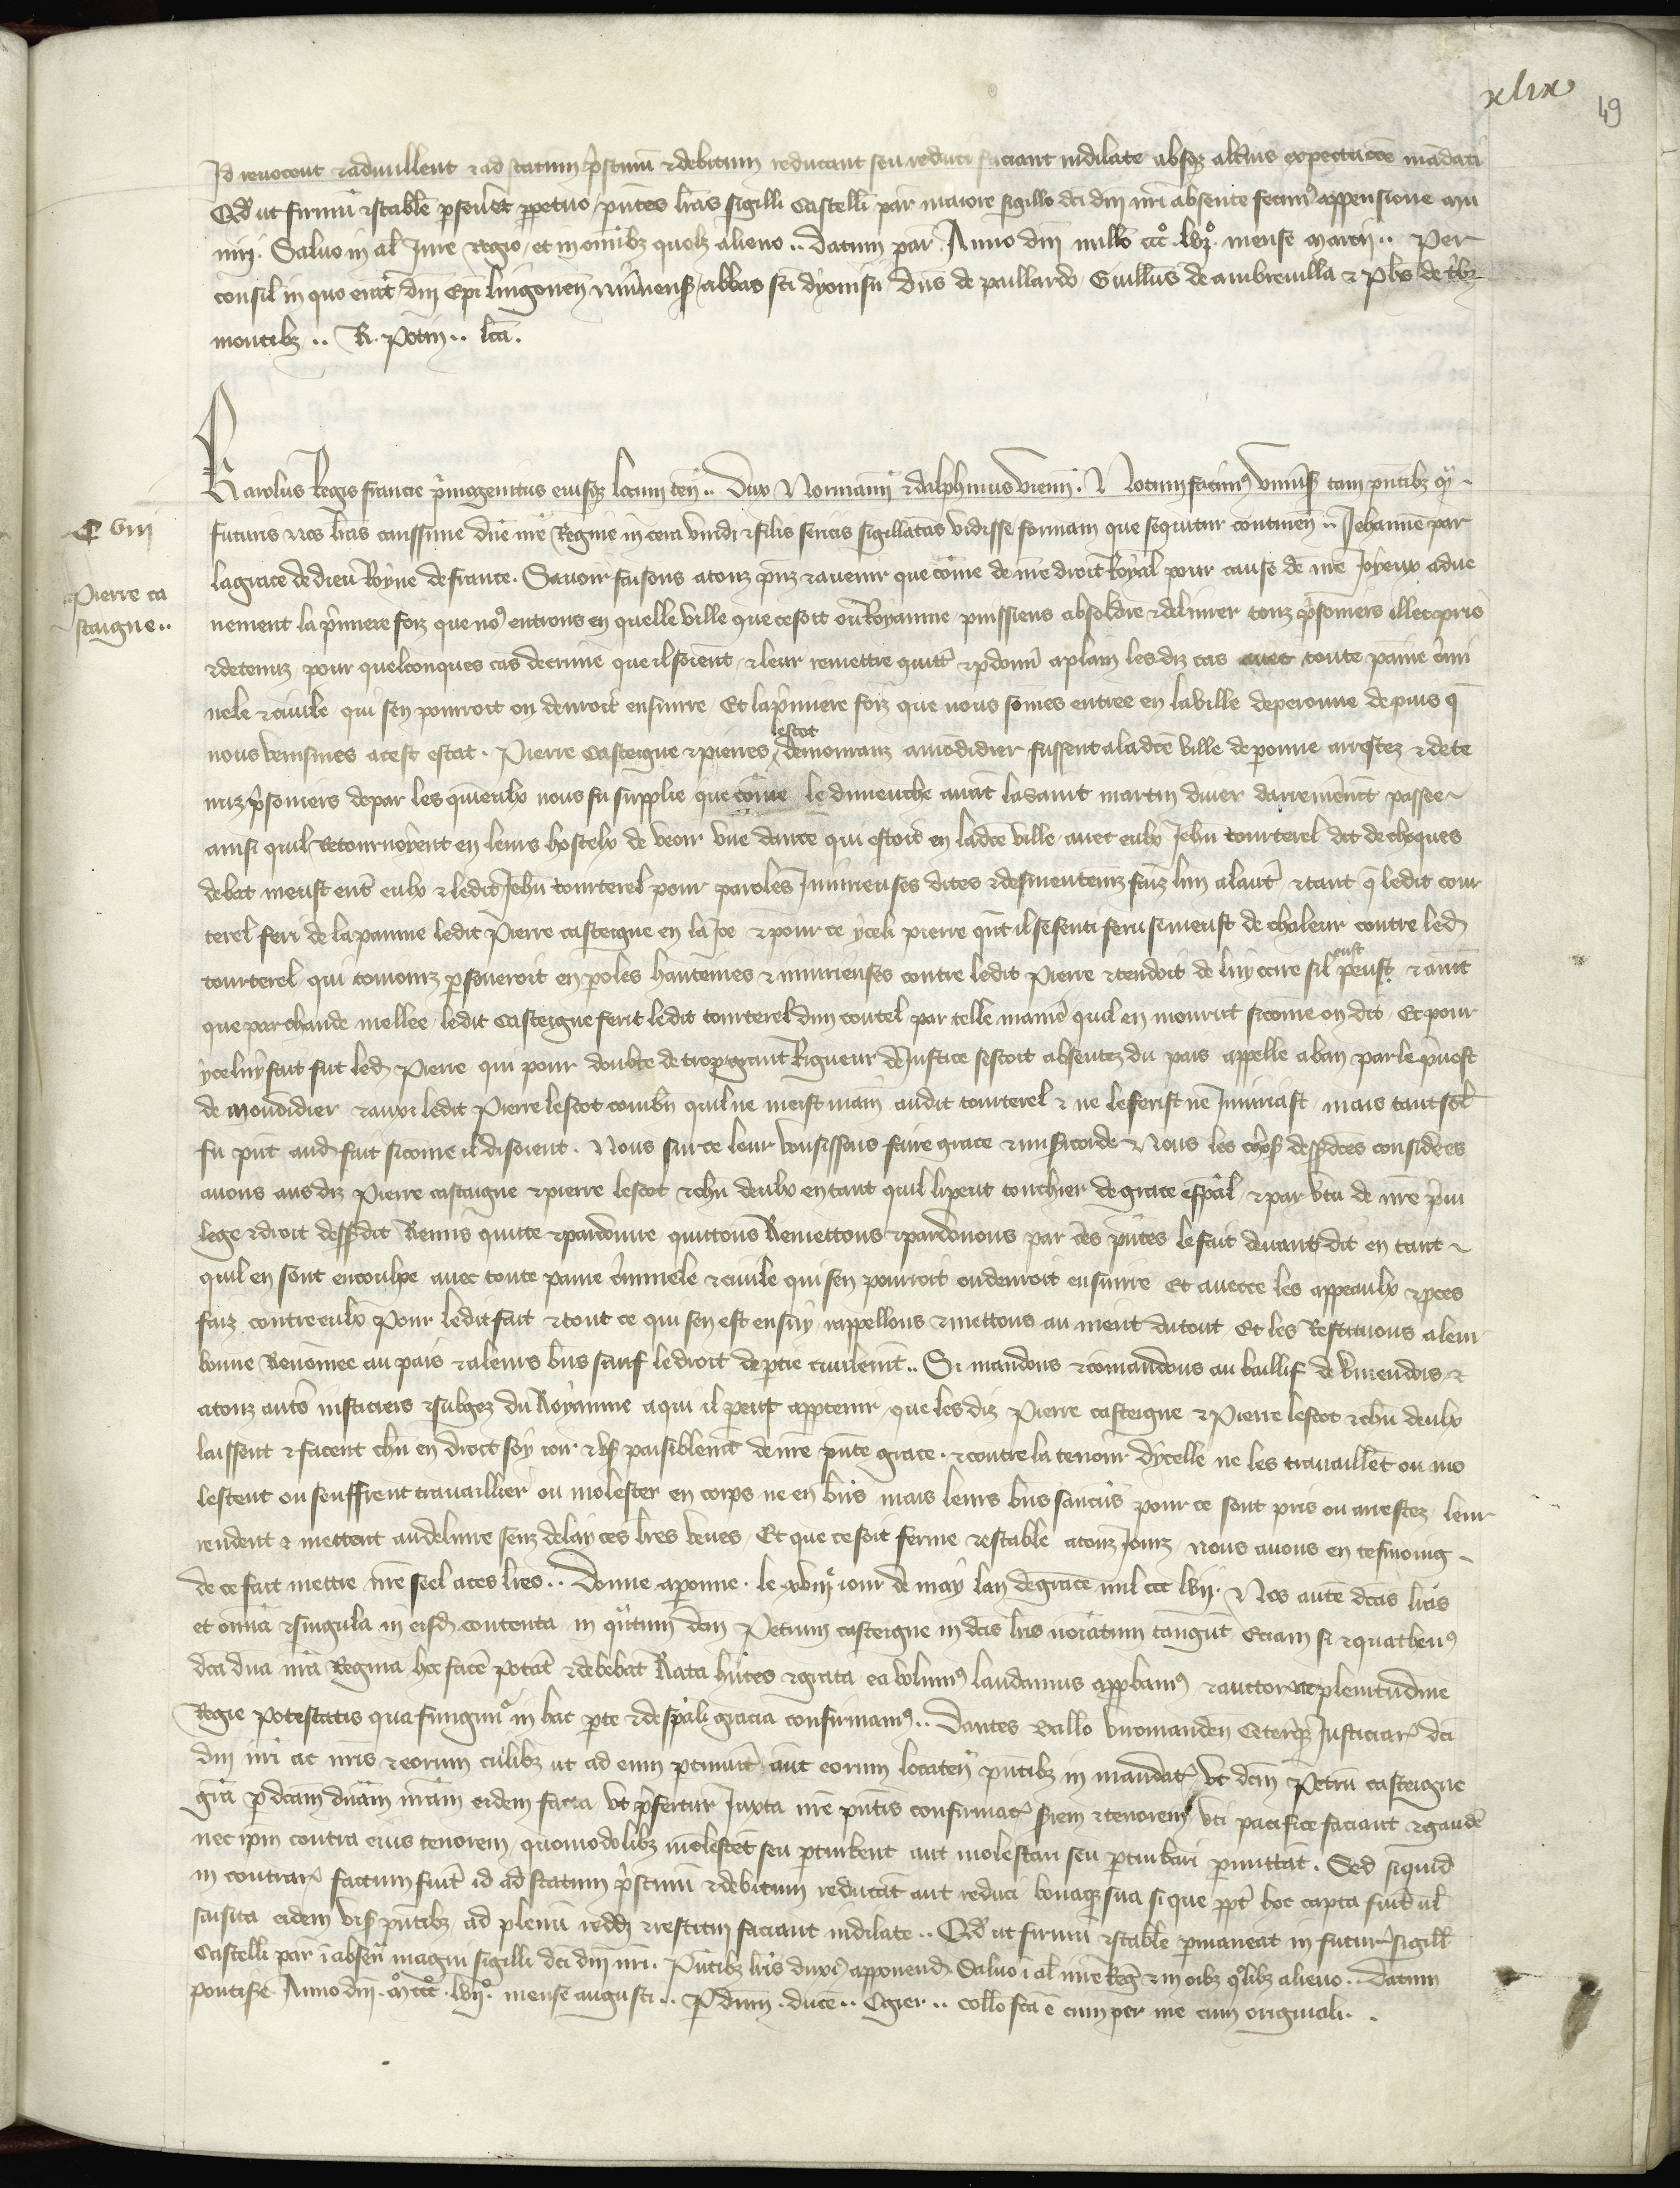 xlix 49
Id revocent & adnullent & ad statum p̃stinũ & debitum reducant seu reduci faciant indilate absq; alt̃ius expectacõe mãdati
Qđ ut firmũ & stabile p̱severet p̱petuo / p̃ntes lr̃as sigilli Castelleti par̃ in maiore sigillo dc̃i dñi nr̃i absente fecim9 appensione mu
niri. Salvo in al̃ Jure Regio / et in omĩbz quolz alieno .. Datum par̃. Anno dñi mill̃o ccco. lvjo. mense marcij .. Per
consiliũ in quo erãt dñi Ep̃i lingoneñ / abbas sc̃i dyonisii dñs de paillardo Guill̃s de ambrevilla & ph̃s de t̃bz
montibz .. R. Potin .. lc̃a.
Karolus Regis francie p̃mogenitus eiusq; locum teñ .. Dux Normanñ & dalphinus vienñ. Notum facim9 univs̃is tam p̃ntibz q̃
futuris nos lr̃as carissime dñe nr̃e Regine in cera viridi & filis sericis sigillatas vidisse formam que sequitur contineñ .. Jehanne par
C viij
la grace de dieu Royne de france. Savoir faisons a touz p̃nz & avenir que cõme de nr̃e droit Royal pour cause de nr̃e joyeux adve
Pierre ca
staigne ..
nement la p̃miere foiz que no9 entrons en quelle ville que ce soit ou Royaume puissiens absoldre & delivrer touz p̃sonniers illec pris
& detenuz pour quelconques cas de crime que il soient / & leur remettre quitt̃ & p̱donñ a plain les diz cas avec toute paine c̃mi
nele & civile / qui sen pourroit ou devroit ensuivre / Et la p̃miere foiz que nous sõmes entree en la ville de peronne depuis q̃
nous venismes a cest estat. Pierre Casteigne & pierres lescot demouranz a mõdidier fussent a la dc̃e ville de p̱onne arrestez & dete
nuz p̃sonniers de par les quieulx nous fu supplie que cõme le dimenche avãt la saint martin diver darreinemẽt passee
ainsi quil Retournoyent en leurs hostelx de veoir une dance qui estoit en ladc̃e ville avec eulx Jeh̃n tourterel dit de choques
debat meust ent̃ eulx & ledit Jeh̃n tourterel pour paroles Iniurieuses dites & desmentemz faiz lun a laut̃ & tant q̃ ledit tour
terel feri de la paume ledit Pierre casteigne en la joe & pour ce yceli pierre q̃nt il se senti feru se meust de chaleur contre led̃
tourterel qui touiourz p̱severoit en p̱oles hauteines & iniurieuses contre ledit Pierre & tendoit de luy ocire sil peust eust & avĩt
que par chaude mellee ledit Casteigne ferit ledit tourterel dun coutel par telle manie̱ quil en mourut sicõme on dit. Et pour
yceluy fait fut led̃ Pierre qui pour doubte de trop grant Rigueur de Justice sestoit absentez du pais appelle a ban par le p̃vost
de mondidier & auxi ledit Pierre lescot combñ quil ne meist main audit tourterel & ne le ferist ne Iniuriast / mais tant sel̃t
fu p̃nt aud̃ fait sicõme il disoient. Nous sur ce leur vousissons faire grace & mis̃icorde Nous les chos̃ dess̃dc̃es considerees
avons aus diz Pierre castaigne & pierre lescot & ch̃n deulx en tant quil li peut touchier de grace esp̃al & par v̾tu de nr̃e p̃vi
lege & droit dess̃dit Remis quitte & pardonne quittons Remettons & pardonnons par ces p̃ntes le fait devant dit en tant
quil en sont encoulpe avec toute paine c̃minele & civile qui sen pourroit ou devroit ensuivre Et avecce les appeaulx & p̱ces
faiz contre eulx Pour ledit fait & tout ce qui sen est ensuy rappellons & mettons au nient du tout Et les Restituons a leur
bonne Renõmee au pais & a leurs b̃ns sauf le droit de p̱tie civilemẽt .. Si mandons & cõmandons au baillif de v̾mendois &
a touz aut̃s justiciers & subgez du Royaume a qui il peut app̱tenir que les diz Pierre casteigne & Pierre lescot & ch̃n deulx
laissent & facent ch̃n en droit soy joir & us̃ paisiblemẽt de nr̃e p̃nte grace. & contre la teneur dycelle ne les travaillẽt ou mo
lestent ou seuffrent travaillier ou molester en corps ne en b̃ns mais leurs b̃ns saucũs pour ce sont pris ou arrestez leur
rendent & mettent au delivre senz delay ces lr̃es veues / Et que ce soit ferme & estable a touz jourz nous avons en tesmoing
de ce fait mettre nr̃e seel a ces lr̃es .. Donne a p̱onne. le xviije jour de may lan de grace mil ccc lvij. Nos autẽ dc̃as lr̃as
et om̃ia & singula in eisd̃ contenta in q̃ntum dc̃m Petrum casteigne in dc̃is lr̃is noĩatum tangũt Eciam si & quathen9
dc̃a dñа nr̃a Regina hec facẽ potãt & debebat Rata h̃ntes & grata ea volum9 laudamus app̱bam9 & auctoritate plenitudine
Regie potestatis qua fungimr in hac p̱te & de sp̃ali gracia confirmam9 .. Dantes Ballo viromandeñ Ceterisq; Justiciar̃ dc̃i
dñi nr̃i ac nr̃is & eorum cuilibz ut ad eum p̱tinuit̃ aut eorum locateñ p̃ntibz in mandat̃ Ut dc̃m Petrũ casteigne
gr̃a p̱ dc̃am dñam nr̃am eidem facta ut p̃fertur Juxta nr̃e p̃ntis confirmac̃ s̃iem & tenorem uti pacifice faciant & gaudẽ
nec ip̃m contra eius tenorem quomodolibz molestẽt seu p̱turbent aut molestari seu p̱turbari p̱mittãt. Sed siquid
in contrar̃ factum fuit̃ id ad statum p̃stinũ & debitum reducãt aut reduci bonaq; sua si que p̱pt̃ hoc capta fuit̃ ul̃
saisita eidem vis̃ p̃ntibz ad plenũ redd̃ & restitui faciant indilate .. Qđ ut firmũ & stabile p̱maneat in futur̃ sigill̃
Castelleti par̃ ĩ absẽñ magni sigilli dc̃i dñi nr̃i. P̃ntibz lr̃is duxim9 apponend̃ Salvo ĩ al̃ iure Reg̃ & in oĩbz qolibz alieno .. Datum
pontis̃e Anno dñi. mo ccco. lvijo. mense augusti .. P̱ dñm. ducẽ .. Ogier .. coll̃o fc̃a ẽ cum per me cum originali.